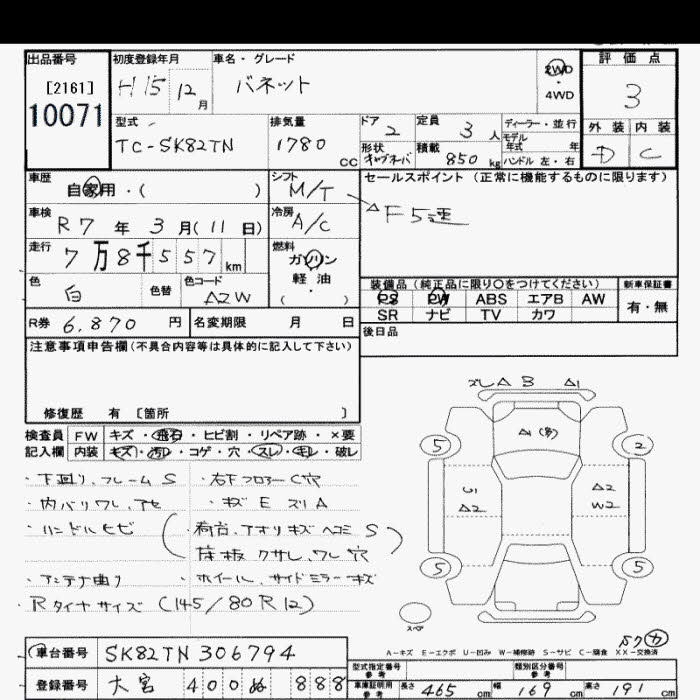 出品番号 初度登録年月 車名・グレード 2WD・4WD 評価点
[2161] H15 12月 バネット 3
10071
型式 排気量 ドア 定員 ディーラー・並行
TC-SK82TN 1780cc 2 3人 モデル年式 年
形状 積載 850kg ハンドル 左・右
外装 内装
D C
車歴 自家用・( ) シフト M/T セールスポイント(正常に機能するものに限ります)
車検 R7年3月(11日) 冷房 A/C △F5速
走行 7万8千557km 燃料 ガソリン
軽油
( )
色 白 色替 色コード A2W
装備品(純正品に限り○をつけてください) 新車保証書
PS PW ABS エアB AW 有・無
SR ナビ TV カワ
R券 6,870円 名変期限 月 日 後日品
注意事項申告欄(不具合内容等は具体的に記入して下さい)
修復歴 有 [箇所 ]
検査員 FW キズ・飛石・ヒビ割・リペア跡・×要
記入欄 内装 キズ・汚レ・コゲ・穴・スレ・キレ・破レ
・下廻り、フレームS ・右下フロアーC穴
・内バリワレ、アセ ・キズEズリA
・ハンドルヒビ (荷台、アオリキズヘコミS
床板クサレ、ワレ穴)
・アンテナ曲り ・ホイール、サイドミラーキズ
・Rタイヤサイズ (145/80R12)
ズレA B A1
A1(多)
5 2
U1 A2
A2 W2
5 5
スペア
A-キズ E-エクボ U-凹み W-補修跡 S-サビ C-腐食 XX-交換済
車台番号 SK82TN306794
登録番号 大宮 400 ぬ 888
型式指定番号 参考 類別区分番号 参考
車庫証明用 参考 長さ 465cm 幅 169cm 高さ 191cm